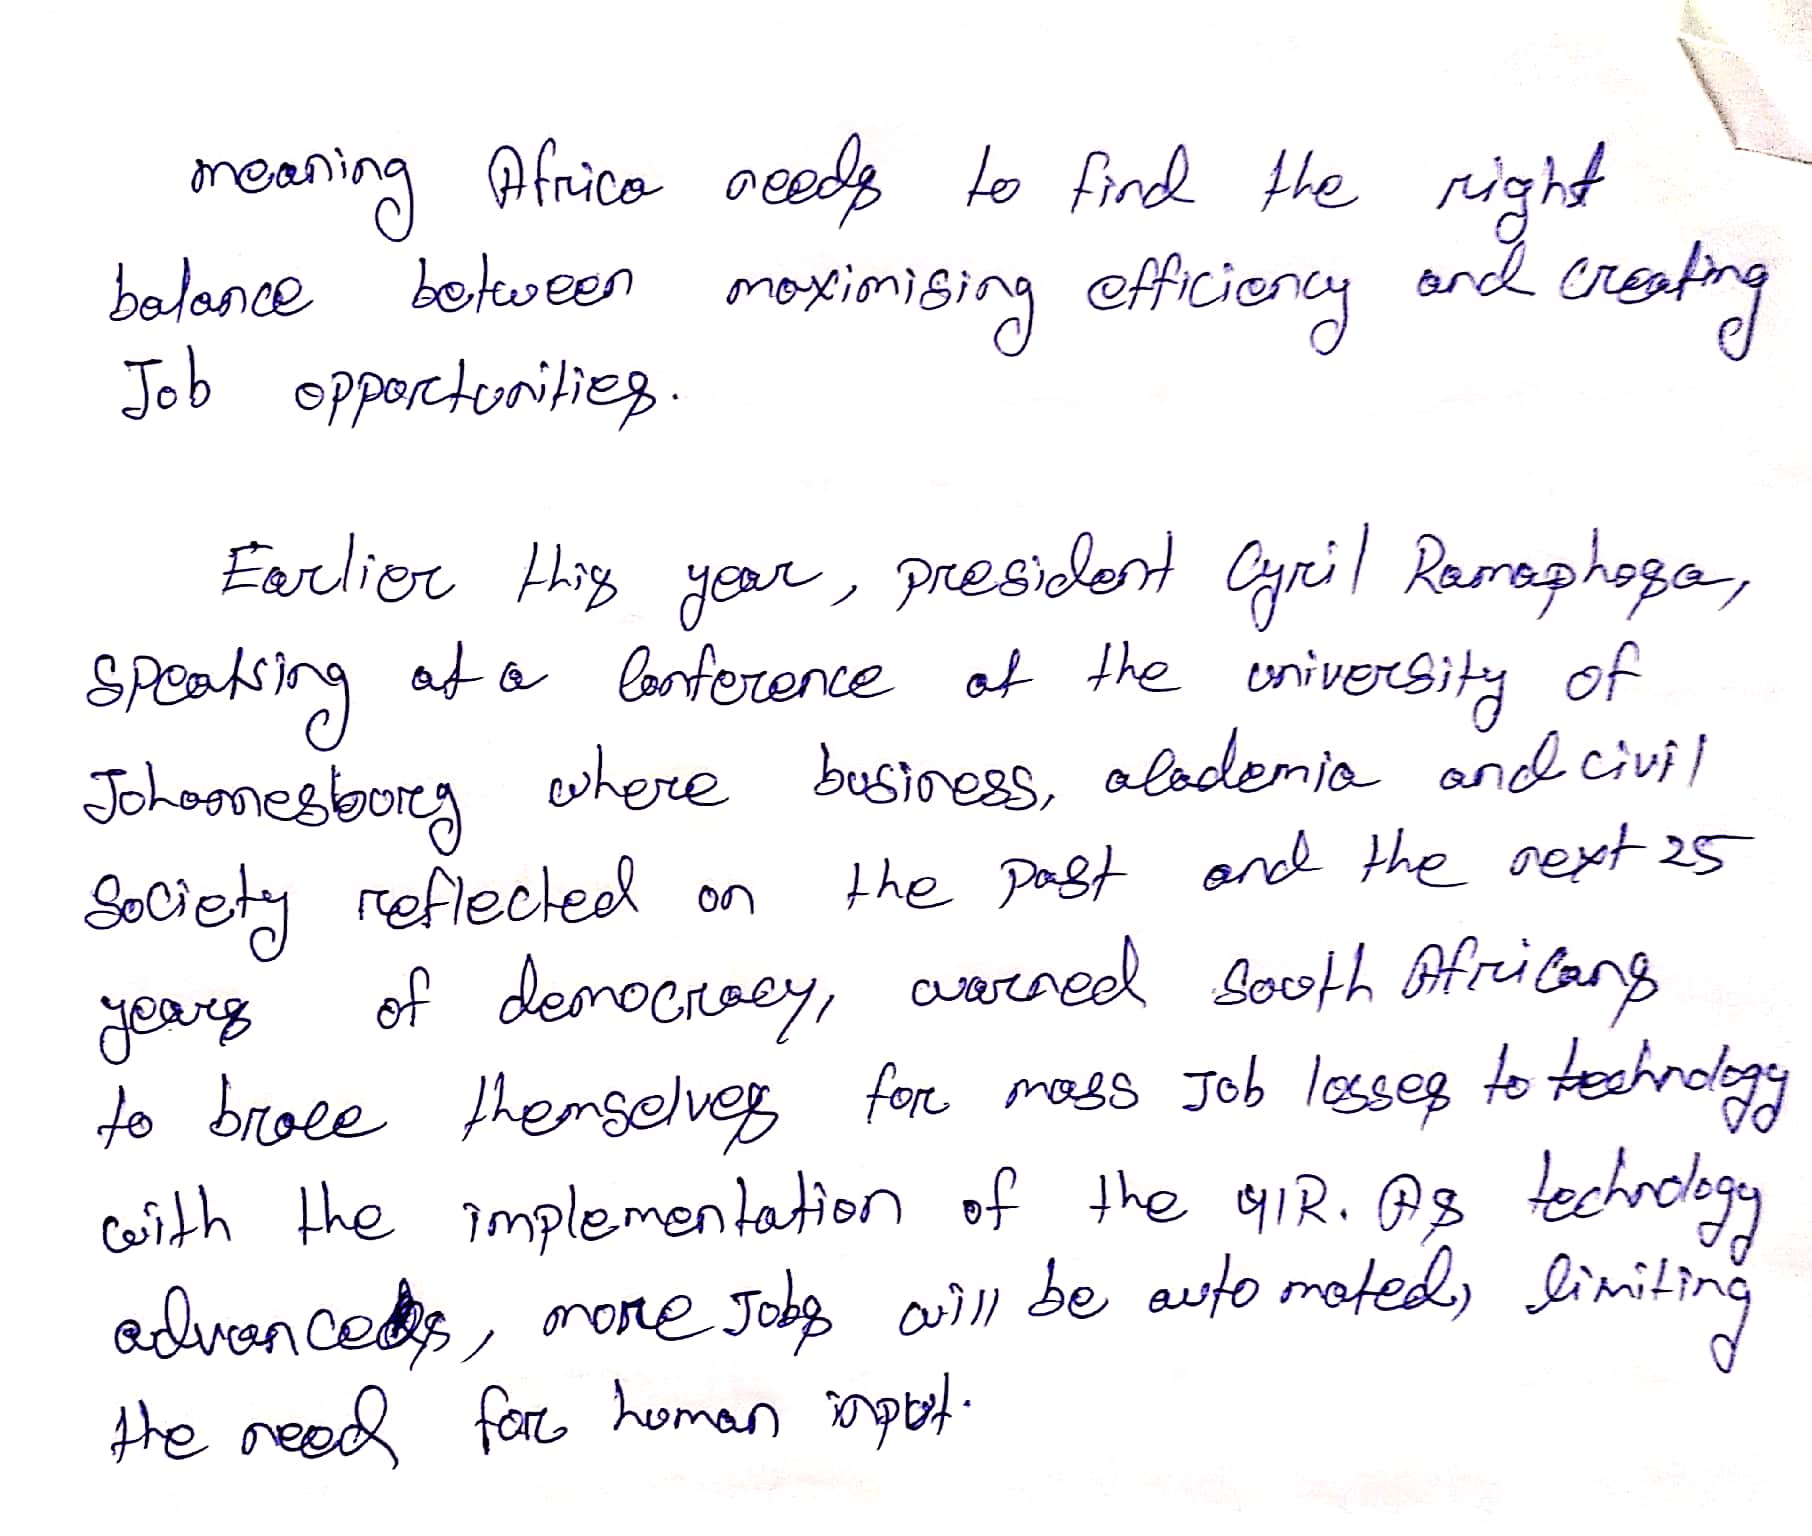 meaning Africa needs to find the right
balance between maximising efficiency and creating
Job opportunities.
Earlier this year, president Cyril Ramaphosa,
speaking at a conference at the university of
Johannesburg where business, academia and civil
Society reflected on the past and the next 25
years of democracy, warned South Africans
to brace themselves for mass Job losses to technology
with the implementation of the 4IR. As technology
advances, more Jobs will be automated, limiting
the need for human input.